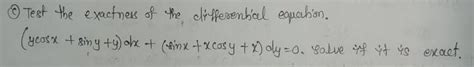 © Test the exactness of the differential equation.
(ycosx + siny + y) dx + (sinx + xcosy + x) dy = 0. solve if it is exact.